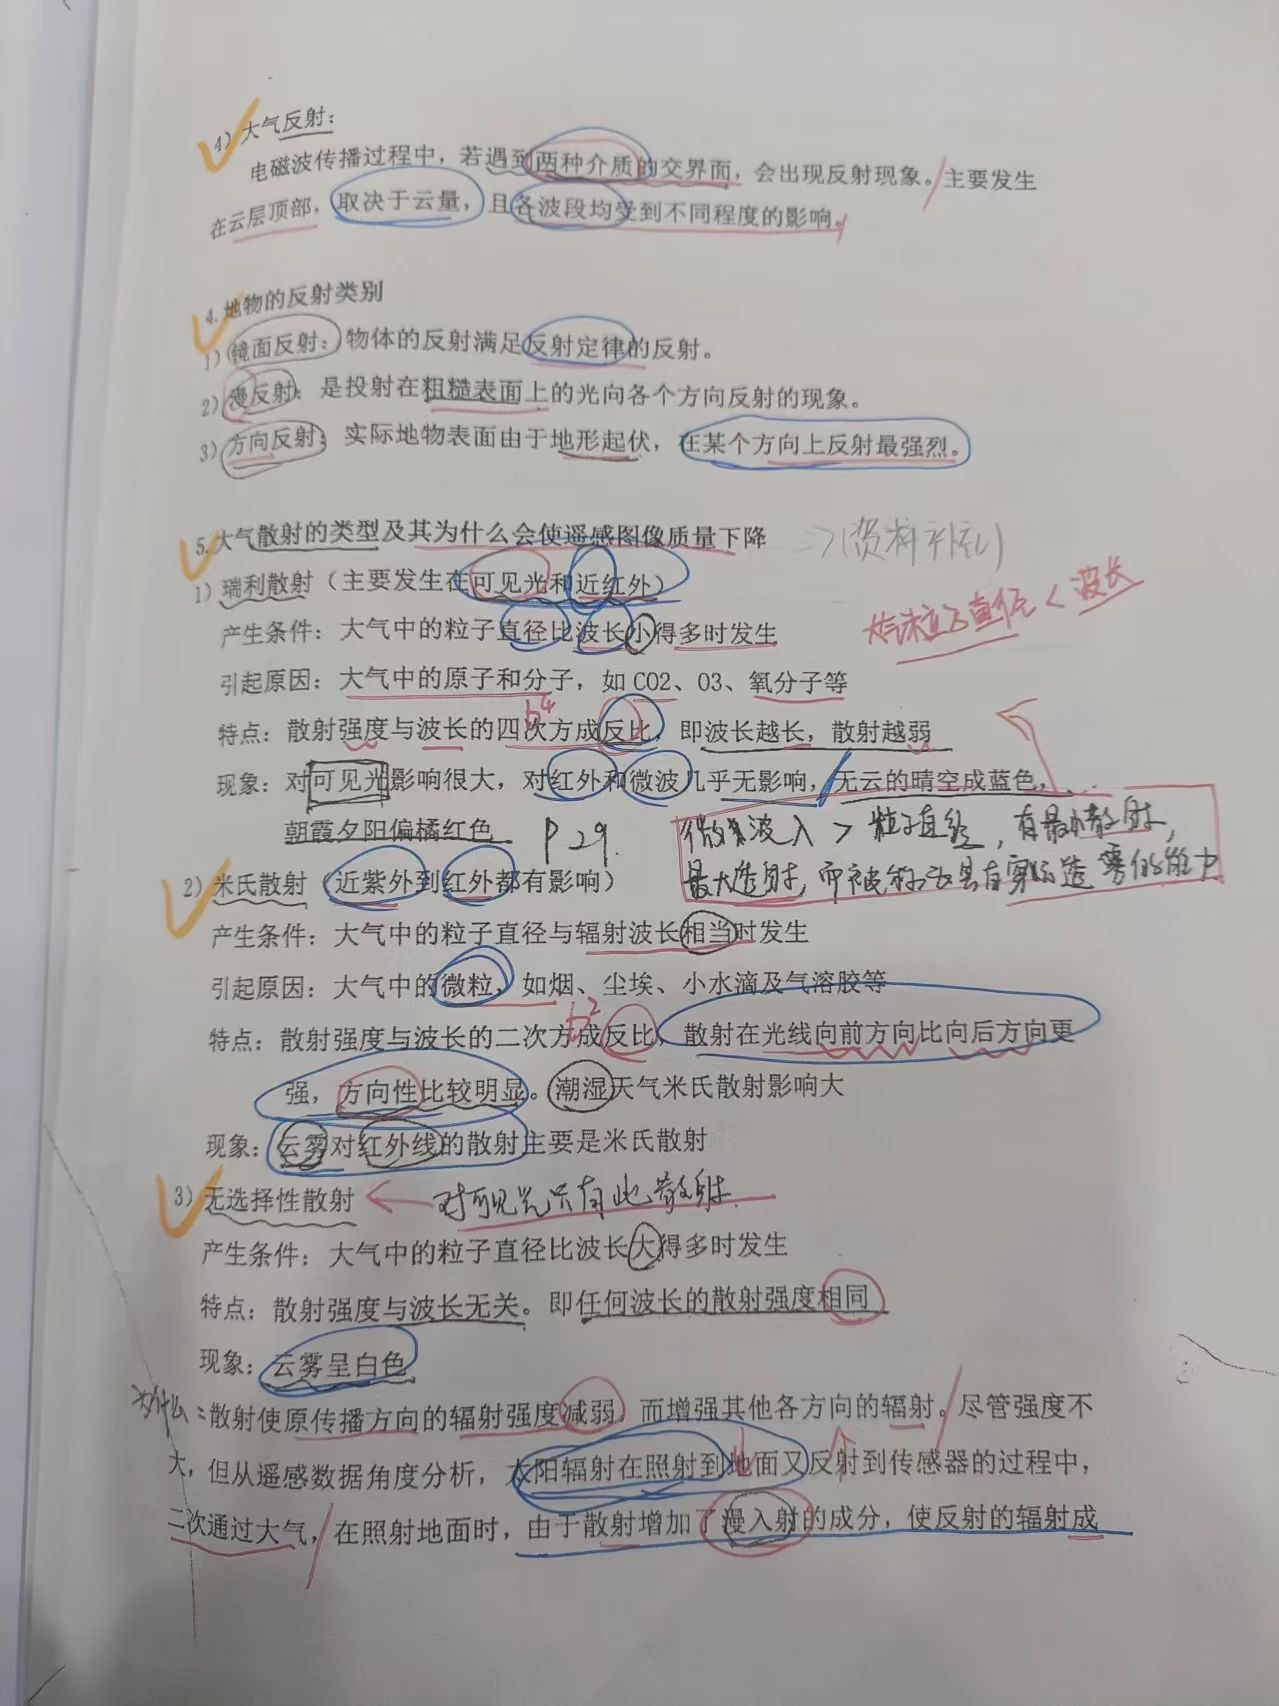 4) 大气反射：
电磁波传播过程中，若遇到两种介质的交界面，会出现反射现象。主要发生
在云层顶部，取决于云量，且各波段均受到不同程度的影响。
4.地物的反射类别
1) 镜面反射：物体的反射满足反射定律的反射。
2) 漫反射：是投射在粗糙表面上的光向各个方向反射的现象。
3) 方向反射：实际地物表面由于地形起伏，在某个方向上反射最强烈。
5.大气散射的类型及其为什么会使遥感图像质量下降 =>(资料补充)
1) 瑞利散射（主要发生在可见光和近红外）
大气粒子直径 < 波长
产生条件：大气中的粒子直径比波长小得多时发生
引起原因：大气中的原子和分子，如 CO2、O3、氧分子等
特点：散射强度与波长的四次方成反比，即波长越长，散射越弱
现象：对可见光影响很大，对红外和微波几乎无影响，无云的晴空成蓝色，
朝霞夕阳偏橘红色 P29.
微波λ > 粒子直径，有最小散射，
最大透射，而被称为具有穿云透雾的能力
2) 米氏散射（近紫外到红外都有影响）
产生条件：大气中的粒子直径与辐射波长相当时发生
引起原因：大气中的微粒，如烟、尘埃、小水滴及气溶胶等
特点：散射强度与波长的二次方成反比，散射在光线向前方向比向后方向更
强，方向性比较明显。潮湿天气米氏散射影响大
现象：云雾对红外线的散射主要是米氏散射
3) 无选择性散射 ← 对可见光只有此散射.
产生条件：大气中的粒子直径比波长大得多时发生
特点：散射强度与波长无关。即任何波长的散射强度相同
现象：云雾呈白色
为什么：散射使原传播方向的辐射强度减弱，而增强其他各方向的辐射。尽管强度不
大，但从遥感数据角度分析，太阳辐射在照射到地面又反射到传感器的过程中，
二次通过大气，在照射地面时，由于散射增加了漫入射的成分，使反射的辐射成